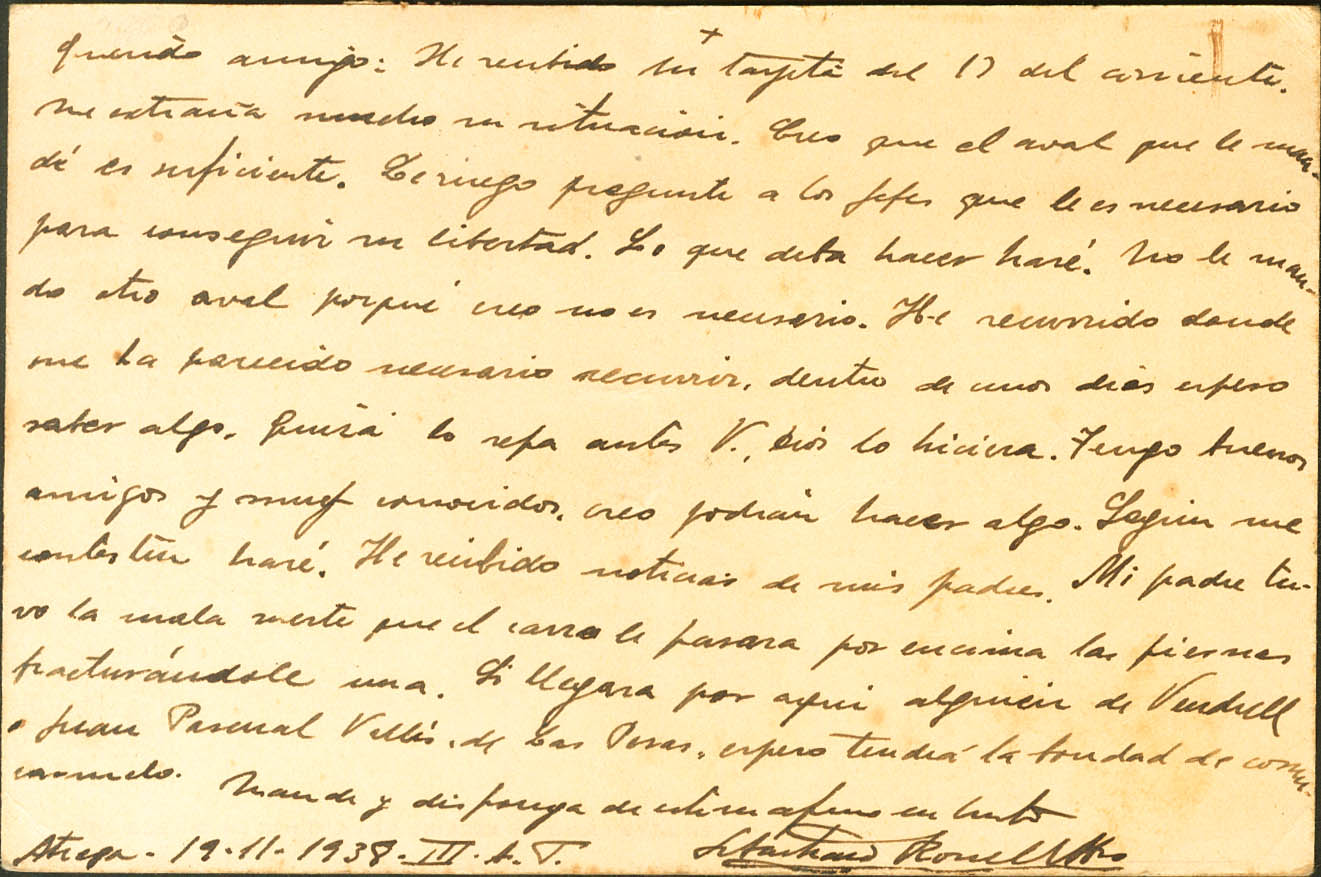 +
Querido amigo: He recibido su tarjeta del 17 del corriente.
Me extraña mucho su situación. Creo que el aval que le man-
dé es suficiente. Le ruego pregunte a los Jefes que le es necesario
para conseguir su libertad. Lo que deba hacer haré. No le man-
do otro aval porqué creo no es necesario. He recurrido donde
me ha parecido necesario recurrir, dentro de unos días espero
saber algo. Quizá lo sepa antes V., Dios lo hiciera. Tengo buenos
amigos y muy conocidos, creo podrán hacer algo. Según me
contesten haré. He recibido noticias de mis padres. Mi padre tu-
vo la mala suerte que el carro le pasara por encima las piernas
fracturándole una. Si llegara por aquí alguien de Vendrell
o Juan Pascual Vallés, de Las Pesas, espero tendrá la bondad de comu-
carmelo.
Mande y disponga de este su afmo en
Ateca - 19-11-1938 - III. A. T.